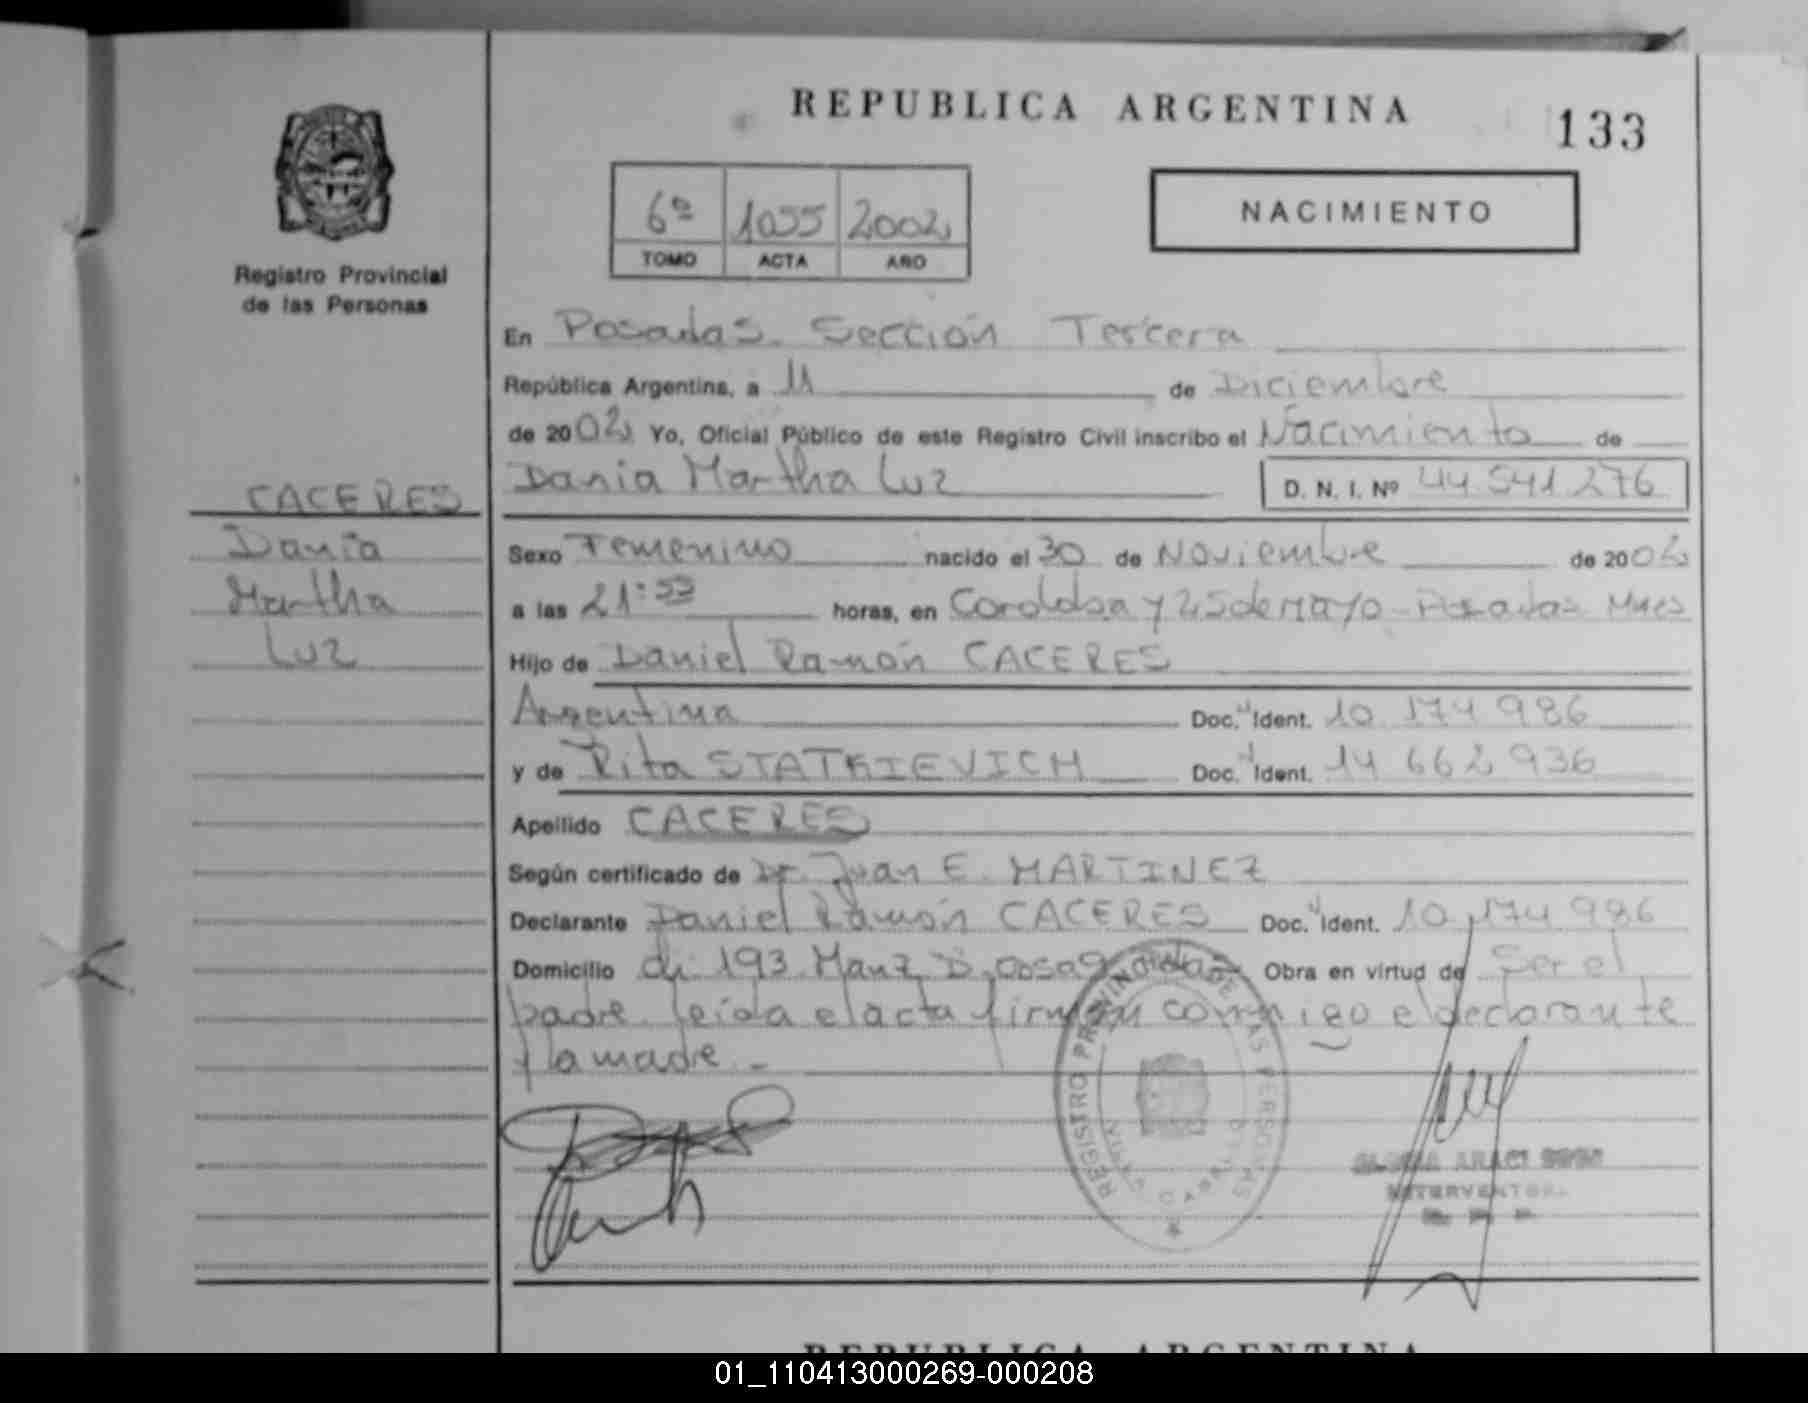 REPUBLICA ARGENTINA
133
6º 1055 2002
TOMO ACTA AÑO
NACIMIENTO
Registro Provincial
de las Personas
En Posadas. Sección Tercera
República Argentina, a 11 de Diciembre
de 2002 Yo, Oficial Público de este Registro Civil inscribo el Nacimiento de
Dania Martha Luz D. N. I. Nº 44.541.276
CACERES
Dania
Martha
Luz
Sexo Femenino nacido el 30 de Noviembre de 2002
a las 21:53 horas, en Cordoba y 25 de Mayo - Posadas Mnes
Hijo de Daniel Ramón CACERES
Argentina Doc. Ident. 10.174.986
y de Rita STATKIEVICH Doc. Ident. 14.662.936
Apellido CACERES
Según certificado de Dr. Juan E. MARTINEZ
Declarante Daniel Ramón CACERES Doc. Ident. 10.174.986
Domicilio ch 193 Manz D Obra en virtud de Ser el
padre. leída el acta firman conmigo el declarante
y la madre. -
REGISTRO PROVINCIAL DE LAS PERSONAS
GLORIA ARACI
INTERVENTORA
REPUBLICA ARGENTINA
01_110413000269-000208